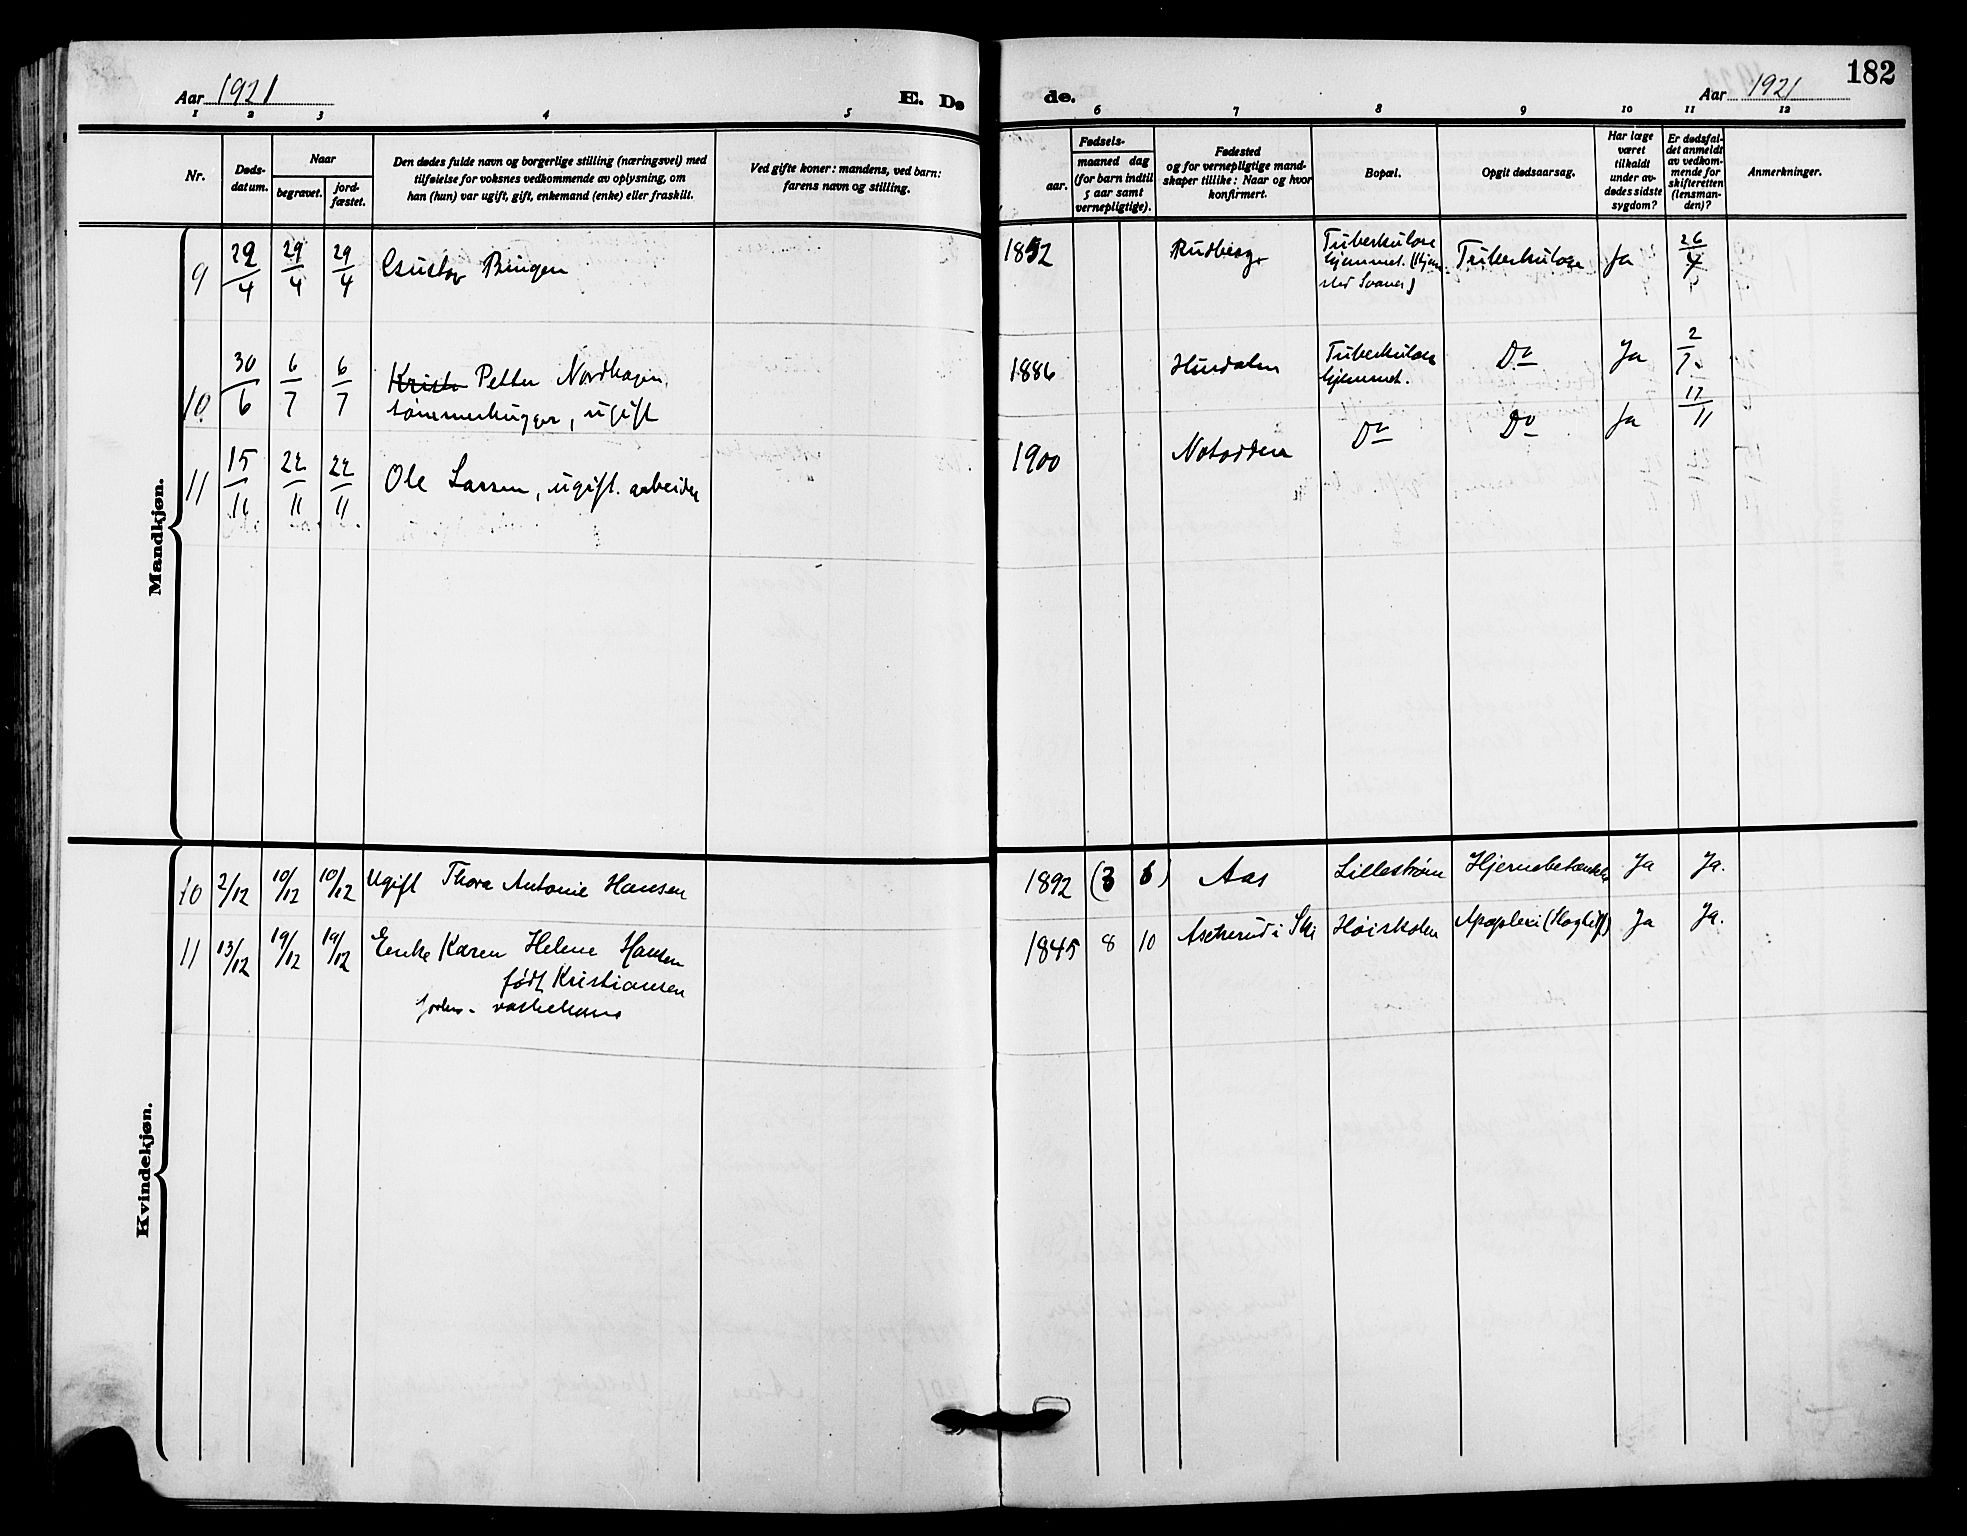 Aar 1921
E. Dø
de.
Aar 1921
182
1 2 3 4 5
6 7 8 9 10 11 12
Nr.
Døds-
datum.
Naar
begravet.
jord-
fæstet.
Den dødes fulde navn og borgerlige stilling (næringsvei) med
tilføielse for voksnes vedkommende av oplysning, om
han (hun) var ugift, gift, enkemand (enke) eller fraskilt.
Ved gifte koner: mandens, ved barn:
farens navn og stilling.
Fødsels-
aar.
maaned dag
(for barn indtil
5 aar samt
vernepligtige).
Fødested
og for vernepligtige mand-
skaper tillike: Naar og hvor
konfirmert.
Bopæl.
Opgit dødsaarsag.
Har læge
været
tilkaldt
under av-
dødes sidste
sygdom?
Er dødsfal-
det anmeldt
av vedkom-
mende for
skifteretten
(lensman-
den)?
Anmerkninger.
Mandkjøn.
9 22/4 29/4 29/4 Gustav Bingen
1852 Rudberg Tuberkulose
hjemmet. Tuberkulose Ja 26/4
10. 30/6 6/7 6/7 Kristo Petter Nordhagen,
tømmerhugger, ugift
1886 Hurdalen Tuberkulose
hjemmet. Do Ja 2/7
11 15/11 22/11 22/11 Ole Larsen, ugift. arbeider
1900 Notodden Do Do Ja 17/11
Kvindekjøn.
10 2/12 10/12 10/12 Ugift Thora Antonie Hansen
1892 (3 6) Aas Lillestrøm Hjernebetændelse Ja Ja.
11 13/12 19/12 19/12 Enke Karen Helene Hansen
født Kristiansen
vaskekone
1845 8 10 Askerud i Ski Høiskolen Apoplexi (Slagtilf) Ja Ja.